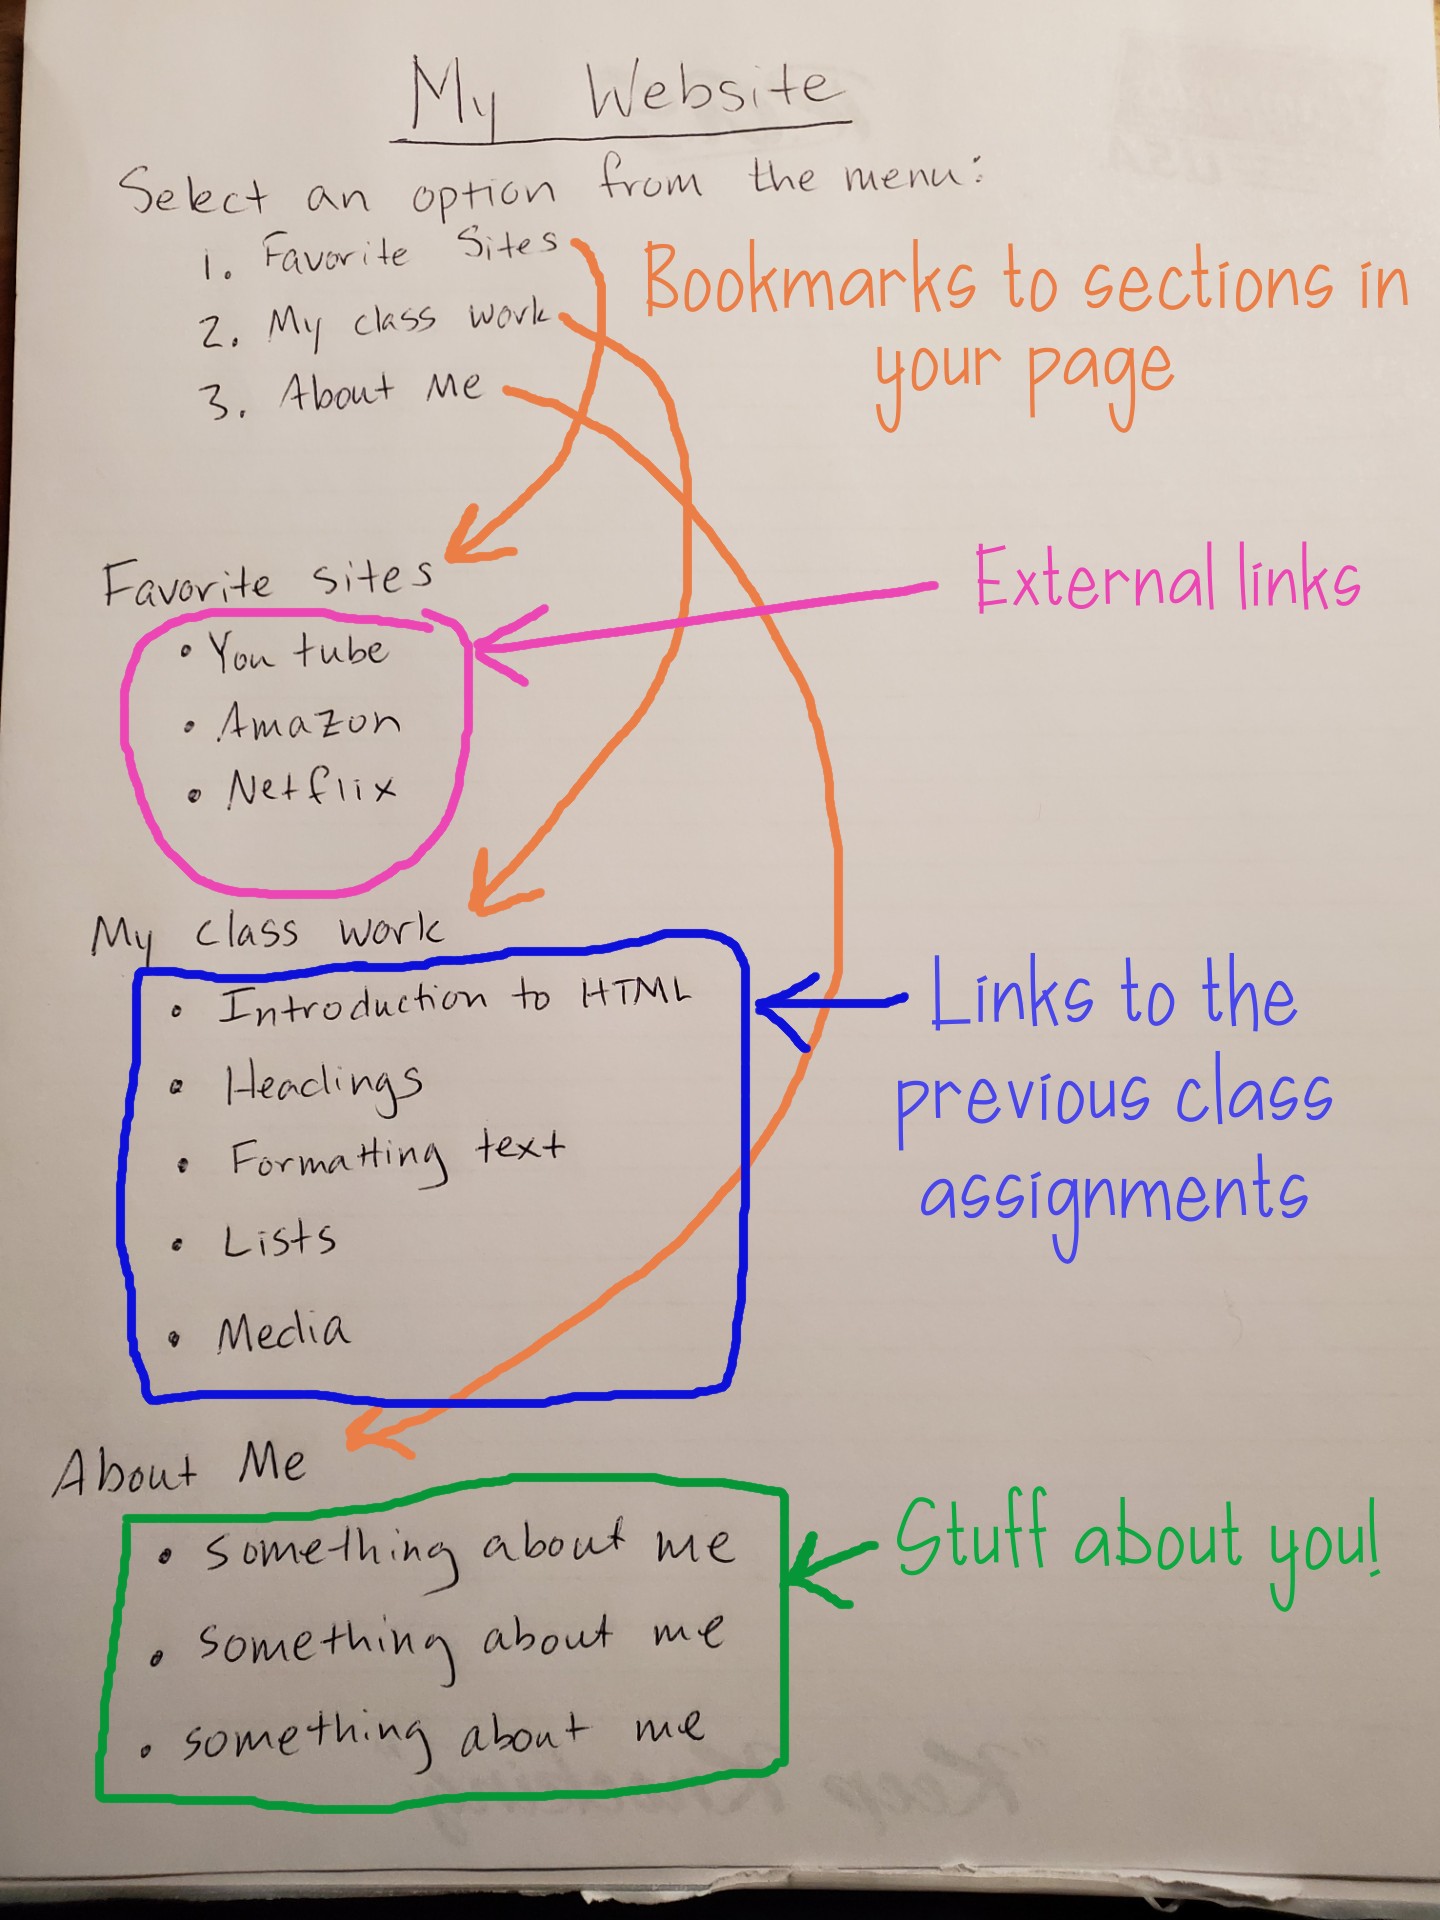 My Website
Select an option from the menu:
1. Favorite Sites
2. My class work
3. About Me
Bookmarks to sections in
your page
Favorite sites
External links
• Youtube
• Amazon
• Netflix
My class work
• Introduction to HTML
• Headings
• Formatting text
• Lists
• Media
Links to the
previous class
assignments
About Me
• something about me
• something about me
• something about me
Stuff about you!
"Keep Knocking"